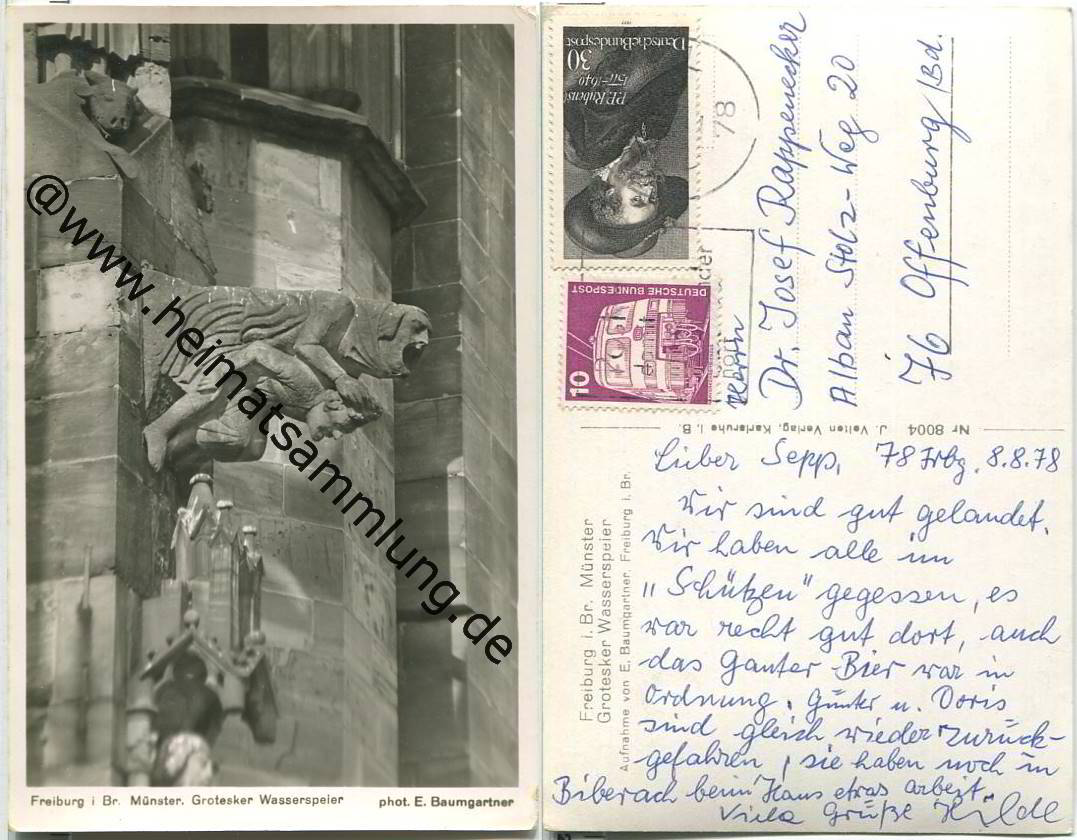 @www.heimatsammlung.de
Freiburg i Br. Münster. Grotesker Wasserspeier
phot. E. Baumgartner
DeutscheBundespost
30
P.P. Rubens
1577-1640
1977
78
DEUTSCHE BUNDESPOST
10
Herrn
Dr. Josef Rappenecker
Alban Stolz-Weg 20
76 Offenburg/Bd.
Nr 8004 J. Velten Verlag, Karlsruhe i. B.
Freiburg i. Br. Münster
Grotesker Wasserspeier
Aufnahme von E. Baumgartner, Freiburg i. Br.
Lieber Sepp, 78 Frbg, 8.8.78
Wir sind gut gelandet.
Wir haben alle im
"Schützen" gegessen, es
war recht gut dort, auch
das Ganter-Bier war in
Ordnung. Günter u. Doris
sind gleich wieder zurück-
gefahren, sie haben noch in
Biberach beim Haus etwas arbeit.
Viele Grüße Hilde